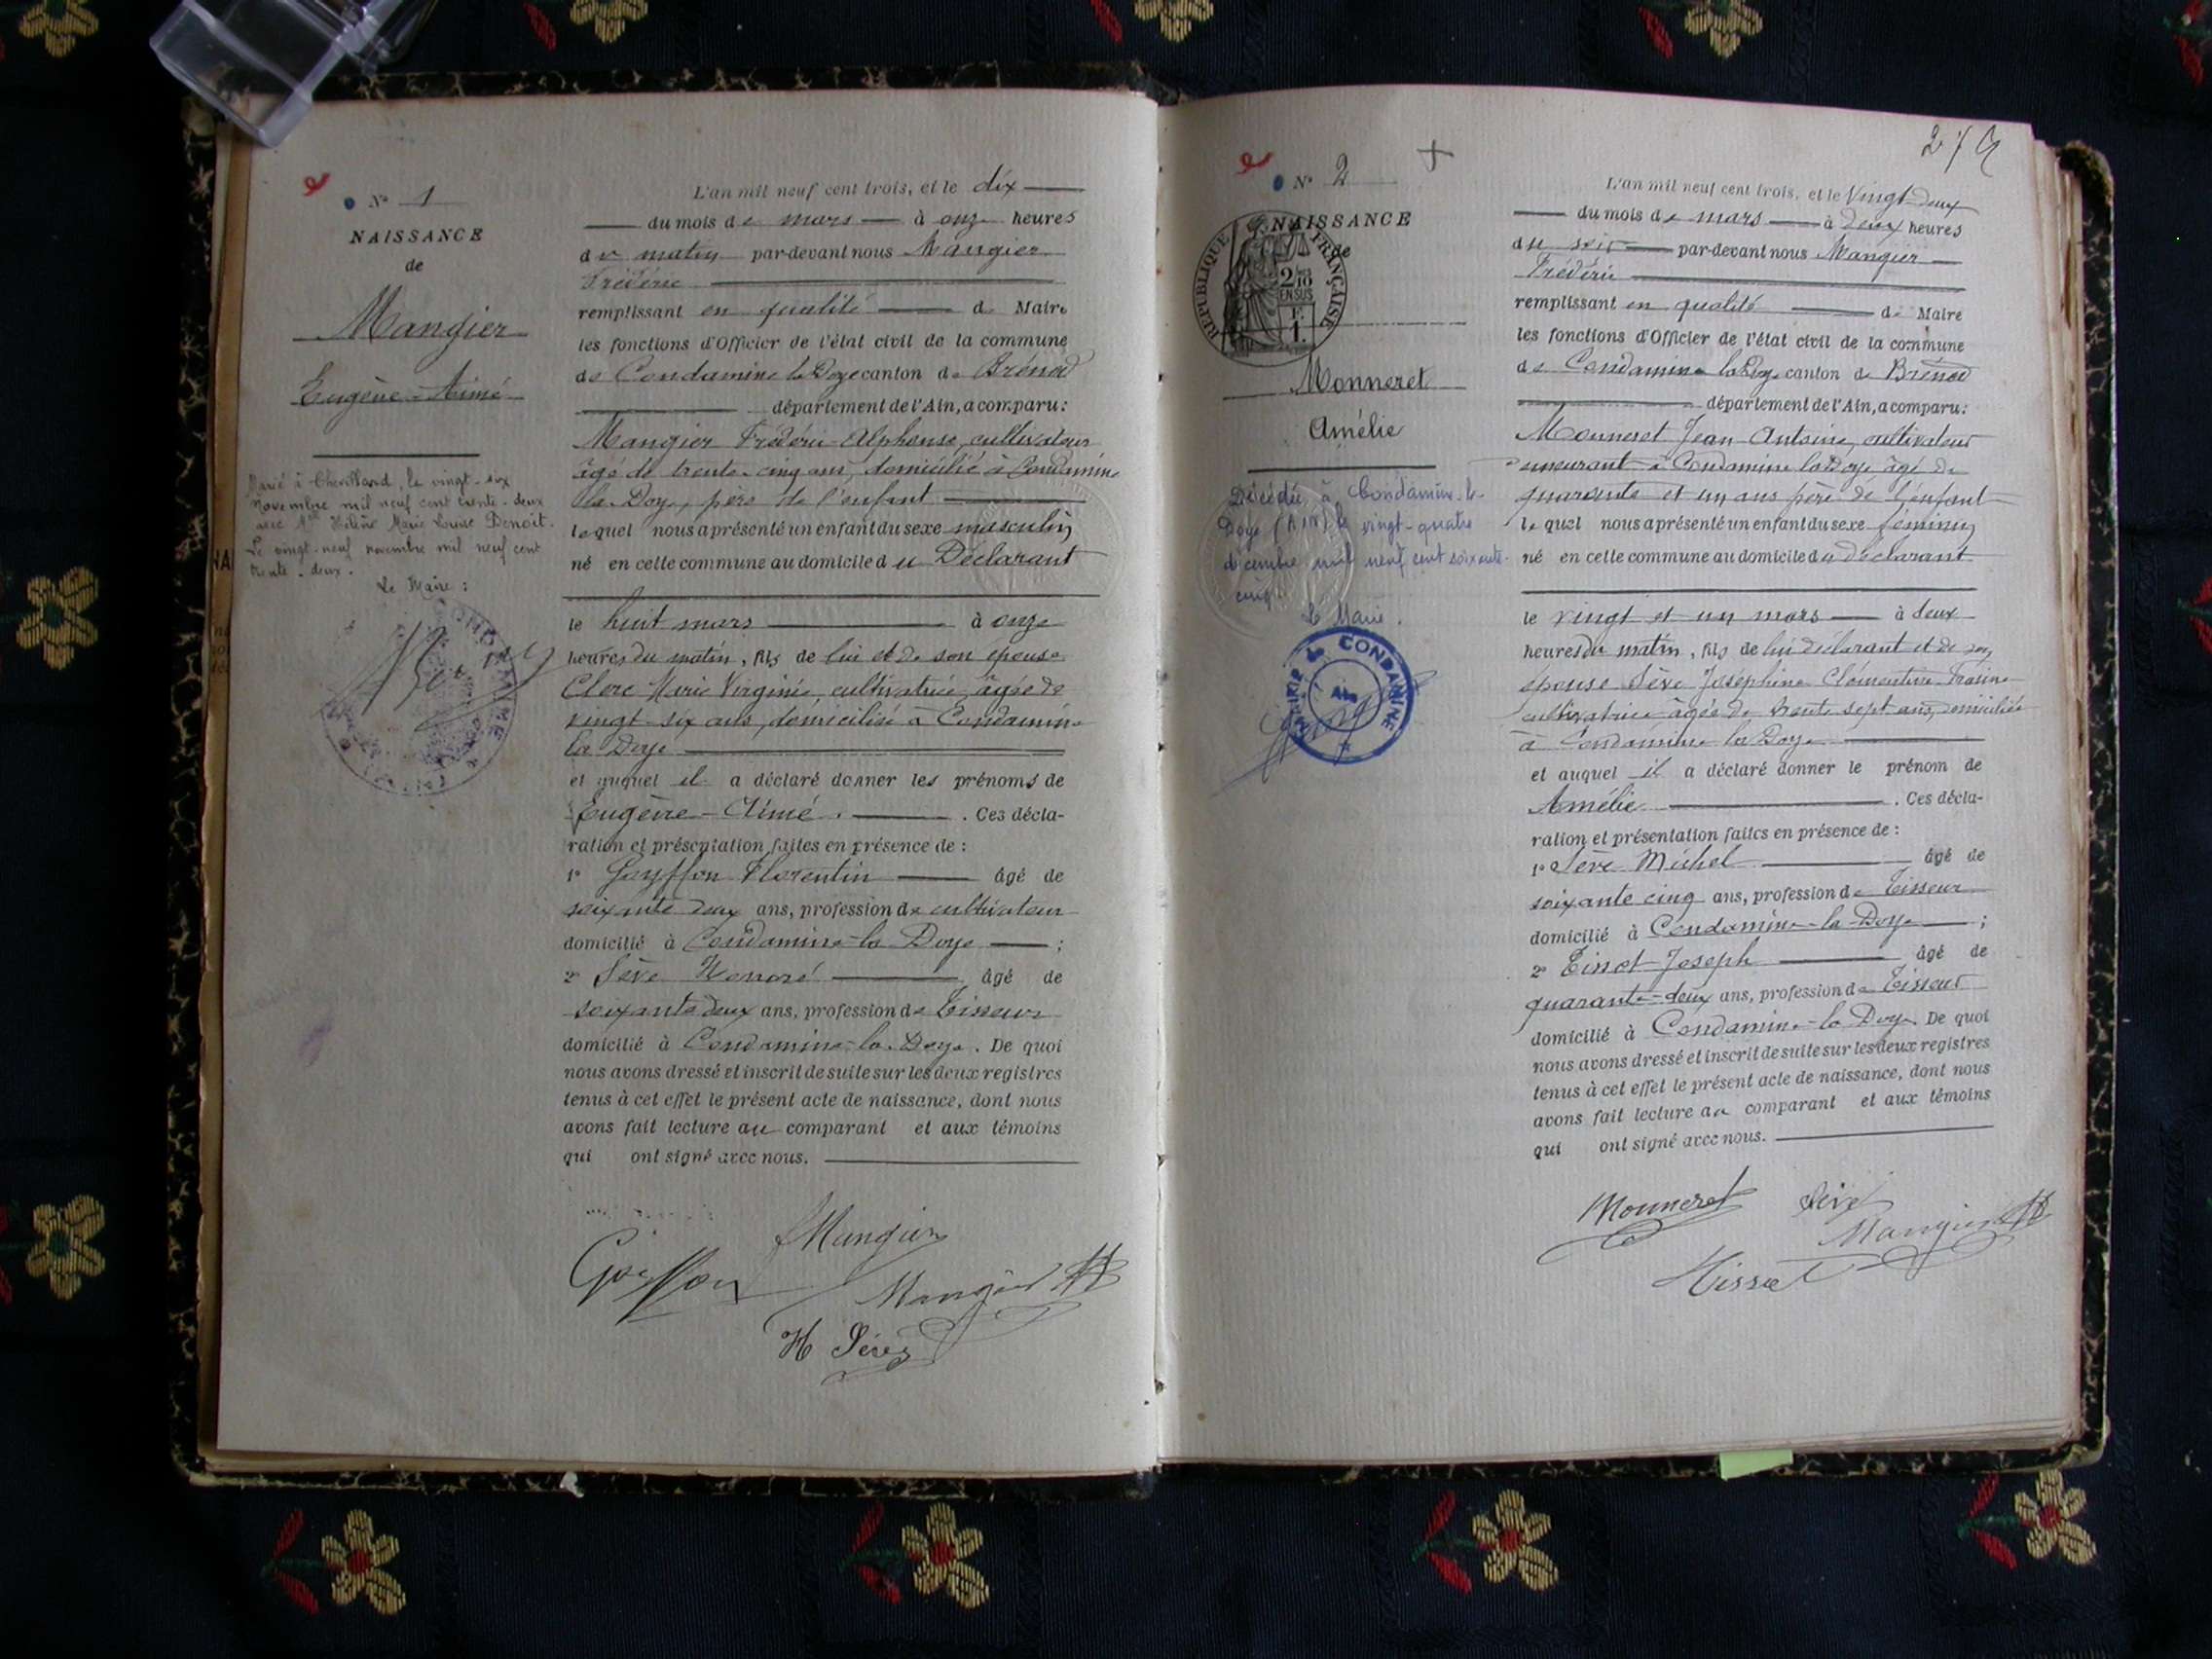 N° 1
NAISSANCE
de
Mangier
Eugène-Aimé
Marié à Chevillard, le vingt-six
novembre mil neuf cent trente-deux
avec Mlle Hélène Marie Louise Benoit.
Le vingt-neuf novembre mil neuf cent
trente-deux.
Le Maire :
L'an mil neuf cent trois, et le dix
du mois de mars à onze heures
du matin par-devant nous Mangier
Frédéric
remplissant en qualité de Maire
les fonctions d'Officier de l'état civil de la commune
de Condamine la Doye canton de Brénod
département de l'Ain, a comparu :
Mangier Frédéric Alphonse, cultivateur
âgé de trente-cinq ans, domicilié à Condamine
la Doye, père de l'enfant
lequel nous a présenté un enfant du sexe masculin
né en cette commune au domicile du Déclarant
le huit mars à onze
heures du matin, fils de lui et de son épouse
Clerc Marie Virginie, cultivatrice, âgée de
vingt-six ans, domiciliée à Condamine
la Doye
et auquel il a déclaré donner les prénoms de
Eugène-Aimé. Ces décla-
ration et présentation faites en présence de :
1° Goyffon Florentin âgé de
soixante deux ans, profession de cultivateur
domicilié à Condamine-la Doye ;
2° Sève Honoré âgé de
soixante deux ans, profession de Tisseur
domicilié à Condamine-la-Doye. De quoi
nous avons dressé et inscrit de suite sur les deux registres
tenus à cet effet le présent acte de naissance, dont nous
avons fait lecture au comparant et aux témoins
qui ont signé avec nous.
Mangier
Goyffon
Mangier
H Sève
273
N° 2
NAISSANCE
de
REPUBLIQUE FRANÇAISE
2/10
EN SUS
F.
1.
Monneret
Amélie
Décédée à Condamine-la-
Doye (AIN) le vingt-quatre
décembre mil neuf cent soixante-
cinq
Le Maire.
MAIRIE de CONDAMINE
Ain
L'an mil neuf cent trois, et le Vingt-deux
du mois de mars à deux heures
du soir par-devant nous Mangier
Frédéric
remplissant en qualité de Maire
les fonctions d'Officier de l'état civil de la commune
de Condamine la Doye canton de Brénod
département de l'Ain, a comparu :
Monneret Jean-Antoine, cultivateur
demeurant à Condamine la Doye âgé de
quarante et un ans père de l'enfant
lequel nous a présenté un enfant du sexe féminin
né en cette commune au domicile du déclarant
le vingt et un mars à deux
heures du matin, fils de lui déclarant et de son
épouse Sève Joséphine Clémentine
cultivatrice âgée de trente sept ans, domiciliée
à Condamine la Doye
et auquel il a déclaré donner le prénom de
Amélie. Ces décla-
ration et présentation faites en présence de :
1° Sève Michel âgé de
soixante cinq ans, profession de Tisseur
domicilié à Condamine-la-Doye ;
2° Tissot Joseph âgé de
quarante-deux ans, profession de Tisseur
domicilié à Condamine-la Doye. De quoi
nous avons dressé et inscrit de suite sur les deux registres
tenus à cet effet le présent acte de naissance, dont nous
avons fait lecture au comparant et aux témoins
qui ont signé avec nous.
Monneret Sève
Mangier
Tissot